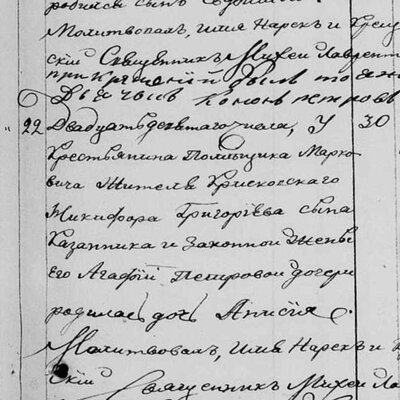 родился сынъ
Молитвовалъ, имя Нарекъ и Крес
скій Священникъ Михей Лаврент
при крещеніи былъ
Дьячекъ Кононъ Петровъ
22 Двадцать девятаго числа, У 30
Крестьянина Помѣщика Марко
вича Жителя Крисковскаго
Никифора Григоріева сына
Казанника и Законной Жены
его Агафіи Петровой дочери
родилась дочь Анисія.
Молитвовалъ, имя Нарекъ и к
скій Священникъ Михей Ла